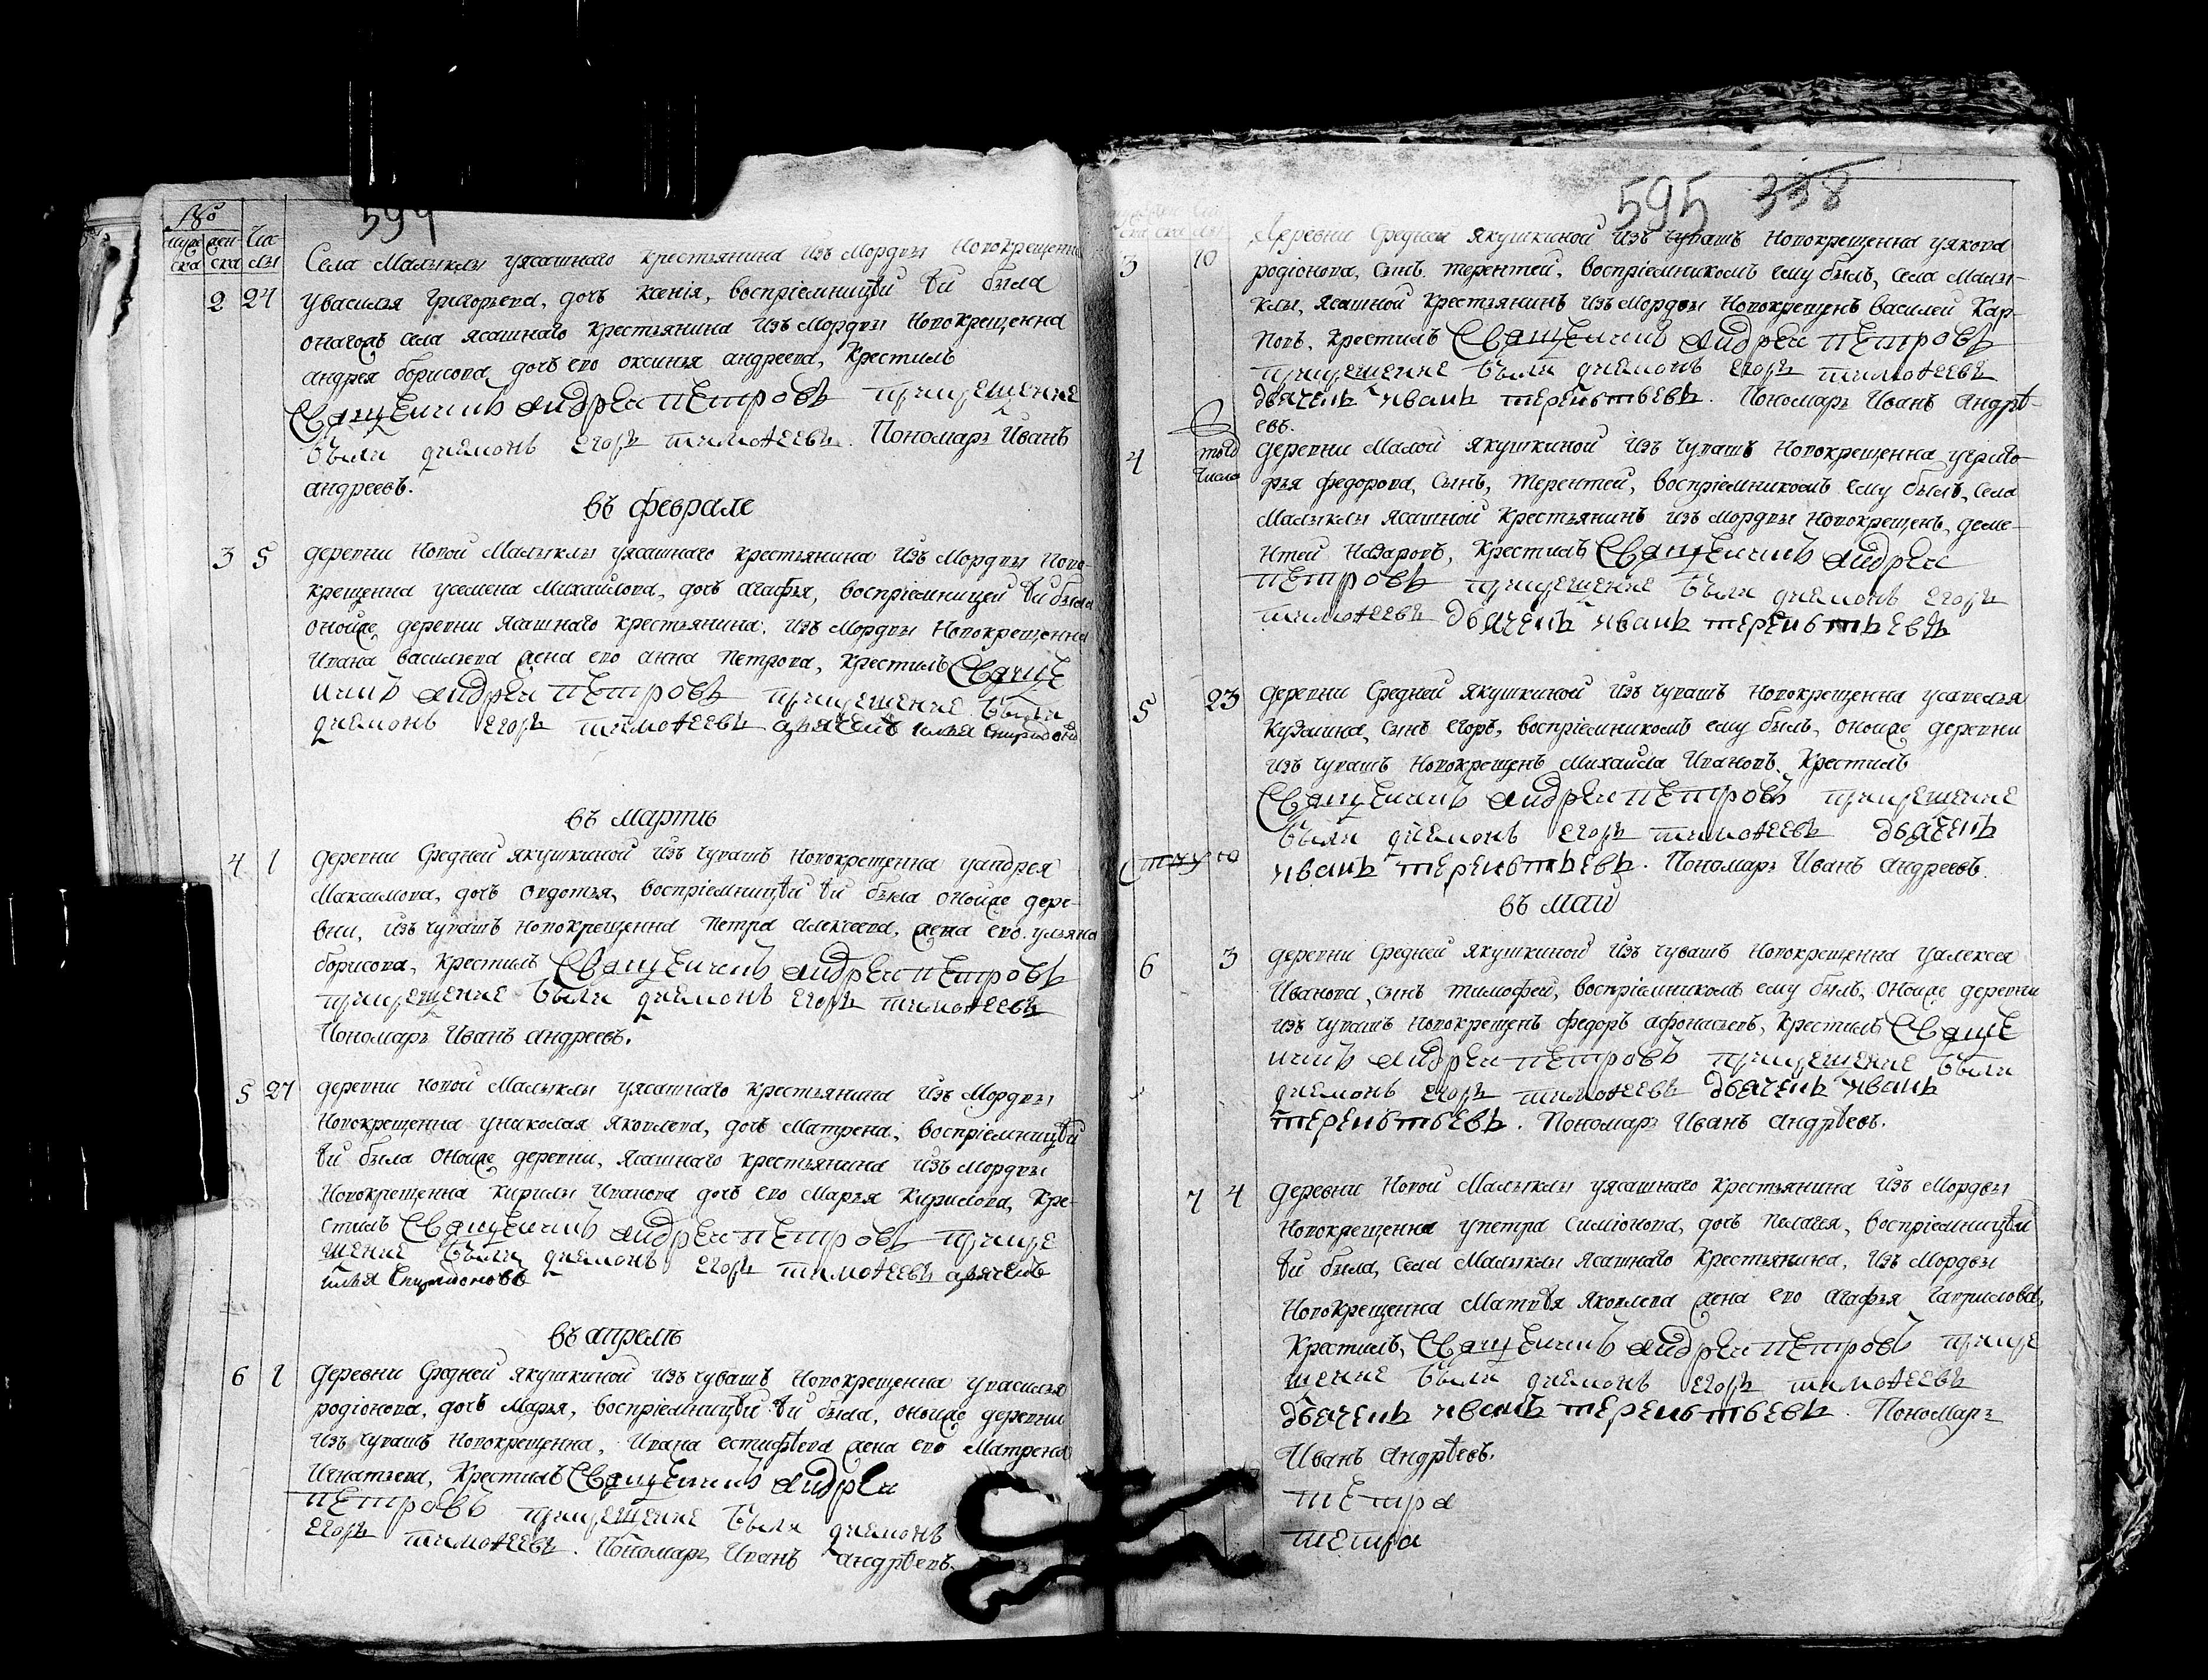 №
муже ска
жен ска
Чи сла
594
Села Малыклы уясашнаго крестьянина изъ Мордвы Новокрещенна
2 24 Увасилья Григорьева, дочь Ксенія, воспріемницѣй ѣй была
онагожъ села ясашнаго крестьянина изъ Мордвы Новокрещенна
андрея борисова дочь его оксинья андреева, Крестилъ
Священникъ андреи петровъ при крещение
были диаконъ егоръ тимоѳеевъ. Пономарь Иванъ
андреевъ.
въ феврале
3 5 деревни Новой Малыклы уясашнаго крестьянина изъ Мордвы Ново-
крещенна усемена Михаилова, дочь агафья, воспріемницей ѣй была
оноиже деревни ясашнаго крестьянина изъ Мордвы Новокрещенна
Ивана васильева жена его анна Петрова, крестилъ Свяще
никъ андреи петровъ при крещение были
диаконъ егоръ тимоѳеевъ дьячекъ илья спиридоновъ
въ мартѣ
4 1 деревни Средней якушкиной изъ чувашъ Новокрещенна уандрея
Максимова, дочь овдотья, воспріемницѣй ѣй была оноиже дере-
вни, изъ чувашъ новокрещенна Петра алексеева, жена его ульяна
борисова, крестилъ Священникъ андреи петровъ
при крещение были диаконъ егоръ тимоѳеевъ
Пономарь Иванъ андреевъ.
5 27 деревни новой Малыклы уясашнаго крестьянина изъ Мордвы
Новокрещенна униколая яковлева, дочь Матрена, воспріемницѣй
ѣй была оноиже деревни, ясашнаго крестьянина изъ Мордвы
Новокрещенна Кирилы Иванова дочь его Марья Кирилова, Кре-
стилъ Священникъ андреи петровъ при кре
щение были диаконъ егоръ тимоѳеевъ дьячекъ
илья Спиридоновъ
въ апрелѣ
6 1 деревни Средней якушкиной изъ чувашъ Новокрещенна увасилья
родіонова, дочь Марья, воспріемницѣй ѣй была, оноиже деревни
изъ чувашъ Новокрещенна, Ивана естифѣева жена его Матрена
Игнатьева, Крестилъ Священникъ андреи
петровъ при крещение были диаконъ
егоръ тимоѳеевъ. Пономарь Иванъ андрѣевъ.
595 338
3 10 Деревни Средней якушкиной изъ чувашъ Новокрещенна уякова
родіонова, сынъ терентей, воспріемникомъ ему былъ, села Малы-
клы, ясашной крестьянинъ изъ Мордвы Новокрещенъ василей Кар-
повъ, Крестилъ Священникъ андреи петровъ
при крещение были диаконъ егоръ тимоѳеевъ
дьячекъ иванъ терентьевъ. Пономарь Иванъ андрѣ-
евъ.
4 того числа деревни Малой якушкиной изъ чувашъ Новокрещенна угриго-
рья федорова, сынъ, терентей, воспріемникомъ ему былъ, села
Малыклы ясашной крестьянинъ изъ мордвы Новокрещенъ, деме-
нтей Назаровъ, крестилъ Священникъ андреи
петровъ при крещение были диаконъ егоръ
тимоѳеевъ дьячекъ иванъ терентьевъ
5 23 деревни Средней якушкиной изъ чувашъ новокрещенна усавелья
Кузмина, сынъ егоръ, воспріемникомъ ему былъ, оноиже деревни
изъ чувашъ Новокрещенъ Михайла Ивановъ. Крестилъ
Священникъ андреи петровъ при крещение
были диаконъ егоръ тимоѳеевъ дьячекъ
иванъ терентьевъ. Пономарь Иванъ андреевъ.
въ маи
6 3 деревни Средней якушкиной изъ чувашъ Новокрещенна уалексея
Иванова, сынъ тимофей, воспріемникомъ ему былъ, оноиже деревни
изъ чувашъ новокрещенъ федоръ афонасьевъ, крестилъ Свяще
никъ андреи петровъ при крещение были
диаконъ егоръ тимоѳеевъ дьячекъ иванъ
терентьевъ. Пономарь Иванъ андрѣевъ.
7 4 деревни Новой Малыклы уясашнаго крестьянина изъ Мордвы
Новокрещенна упетра симіонова, дочь пелагея, воспріемницѣй
ѣй была, села Малыклы ясашнаго крестьянина, изъ Мордвы
Новокрещенна Матвѣя яковлева жена его агафья гаврилова,
Крестилъ, Священникъ андреи петровъ при кре
щение были диаконъ егоръ тимоѳеевъ
дьячекъ иванъ терентьевъ. Пономарь
Иванъ андрѣевъ.